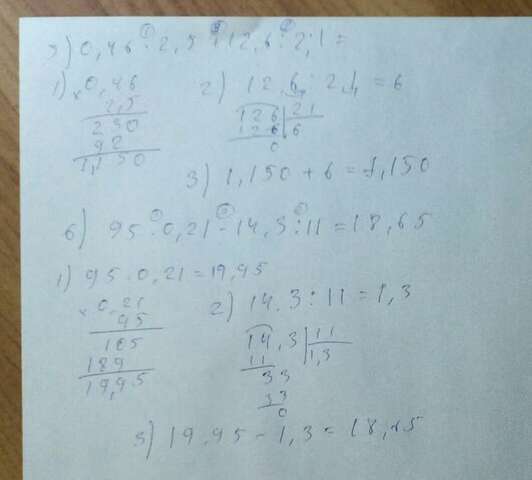 5) 0,46 · 2,5 + 12,6 : 2,1 =
1) × 0,46
2,5
230
92
1,150
2) 12,6 : 2,1 = 6
126 | 21
126 | 6
0
3) 1,150 + 6 = 7,150
6) 95 · 0,21 - 14,3 : 11 = 18,65
1) 95 · 0,21 = 19,95
× 0,21
95
105
189
19,95
2) 14,3 : 11 = 1,3
14,3 | 11
11 | 1,3
33
33
0
3) 19,95 - 1,3 = 18,65